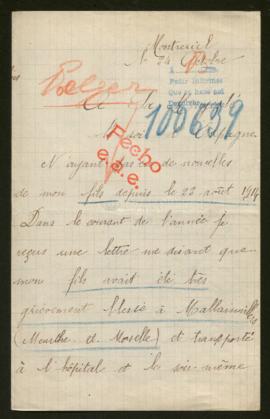 Montreuil
le 24 Octobre
Pedir Informes
Que se hace así
Belzer
106639
Fecho
e.e.e.
N'ayant pas de nouvelles
de mon fils depuis le 22 août 1914
Dans le courant de l'année je
reçus une lettre me disant que
mon fils avait été très
grièvement blessé à
(Meurthe et Moselle) et transporté
à l'hôpital et le soir même